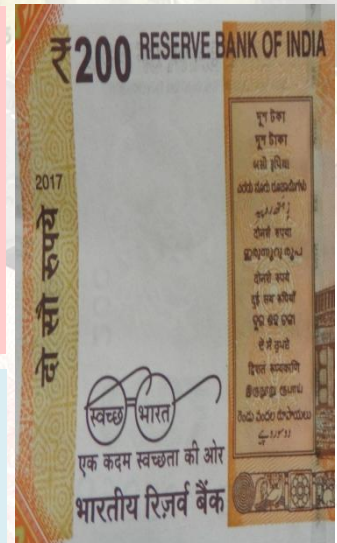 ₹200 RESERVE BANK OF INDIA
2017
दो सौ रुपये
দুশ টকা
দুশ টাকা
બસો રૂપિયા
ಎರಡು ನೂರು ರೂಪಾಯಿಗಳು
दोनशें रुपया
ഇരുന്നൂറു രൂപ
दोनशे रुपये
दुई सय रुपियाँ
ଦୁଇ ଶହ ଟଙ୍କା
ਦੋ ਸੌ ਰੁਪਏ
द्विशतं रूप्यकाणि
இருநூறு ரூபாய்
రెండు వందల రూపాయలు
स्वच्छ भारत
एक कदम स्वच्छता की ओर
भारतीय रिज़र्व बैंक